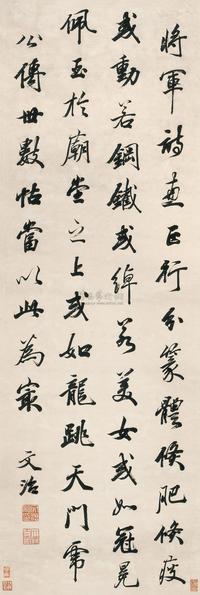 將軍詩正行分篆體倏肥倏瘦
或動若鋼鐵或綽若美女或如冠冕
佩玉於廟堂之上或如龍跳天門虎
公傳世數帖當以此為冣
文治